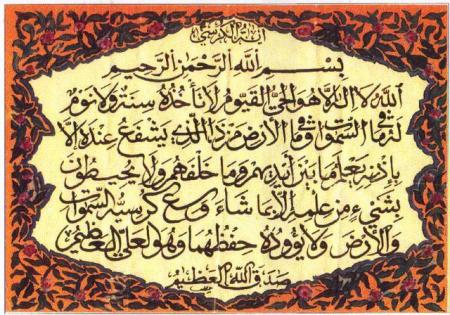 آية الكرسي
بسم الله الرحمن الرحيم
الله لا اله الا هو الحي القيوم لا تأخذه سنة ولا نوم
له ما في السموات وما في الأرض من ذا الذي يشفع عنده إلا
بإذنه يعلم ما بين أيديهم وما خلفهم ولا يحيطون
بشيء من علمه إلا بما شاء وسع كرسيه السموات
والأرض ولا يؤوده حفظهما وهو العلي العظيم
صدق الله العظيم